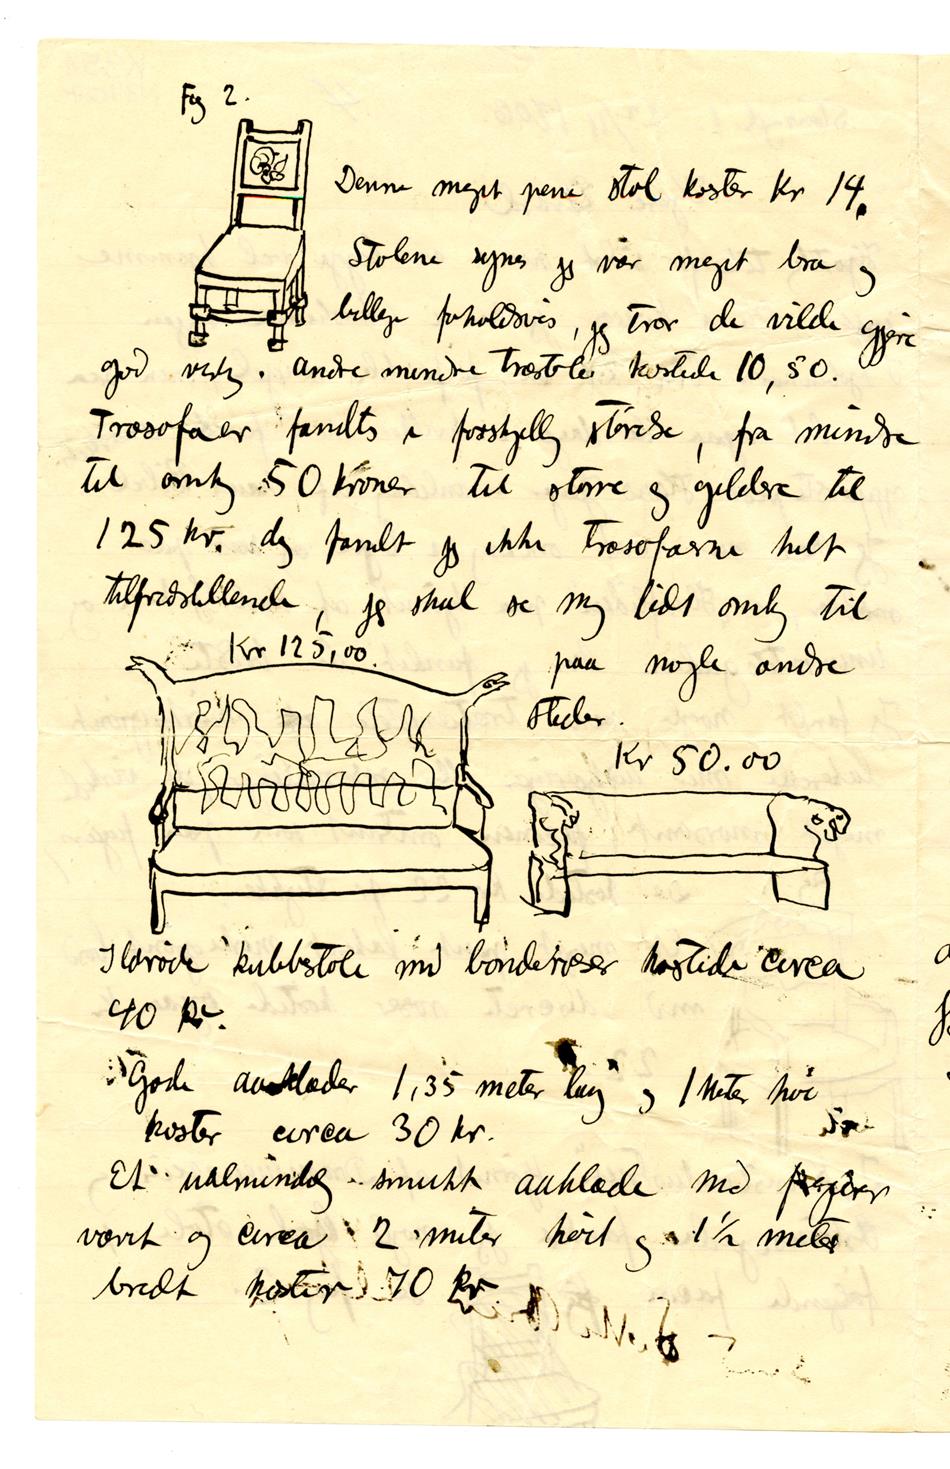 Fig 2.
Denne meget pene stol koster Kr 14.
Stolene synes jeg var meget bra og
billige forholdsvis, jeg tror de vilde gjøre
god virkg. andre mindre træstole kostede 10,50.
Træsofaer fandts i forskjellig størelse, fra mindre
til omkg 50 kroner til større og gildere til
125 kr. dog fandt jeg ikke træsofaerne helt
tilfredstillende, jeg skal se mig lidt omkg til
Kr 125,00.
paa nogle andre
steder.
Kr 50.00
Ildrøde kubbstole md bonderoser kostede circa
40 Kr.
Gode aaklæder 1,35 meter lang og 1 Meter høi
koster circa 30 kr.
Et ualmindeg smukt aaklæde md figurer
vævet og circa 2 meter høit og 1½ meter
bredt koster 70 kr